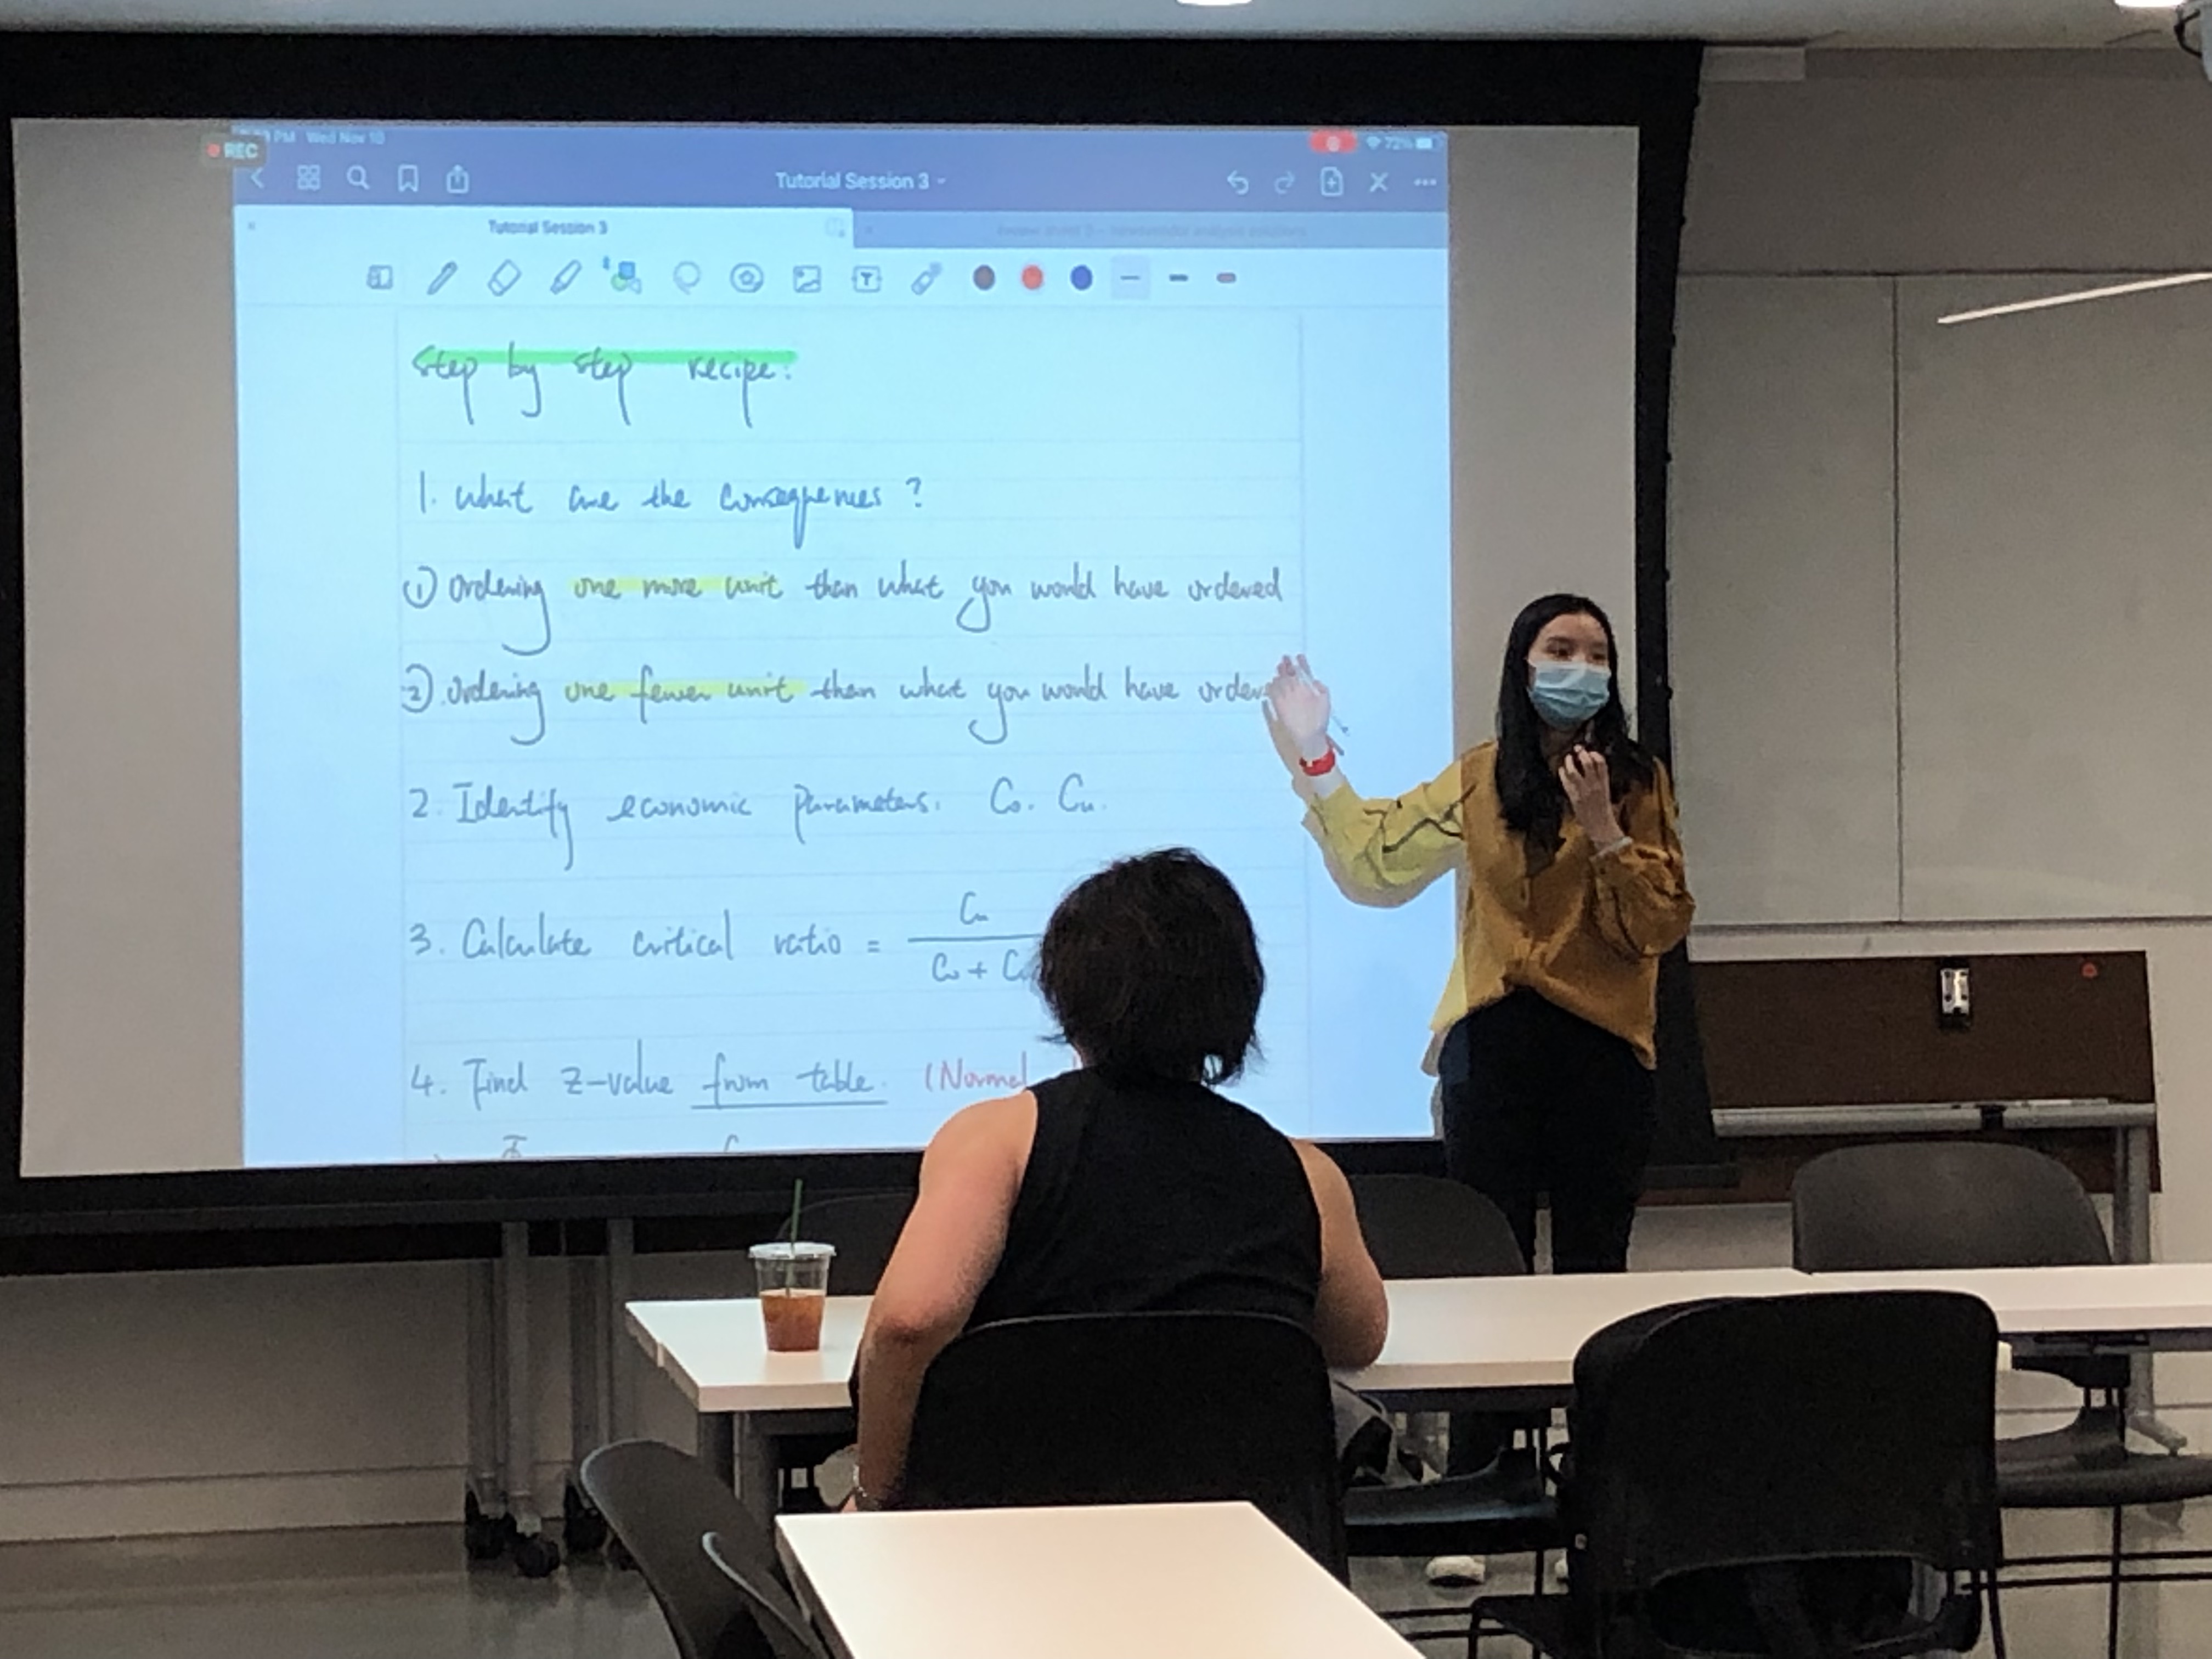 REC
PM Wed Nov 10
72%
Tutorial Session 3
Tutorial Session 3
Step by step recipe:
1. What are the consequences?
① Ordering one more unit than what you would have ordered
② Ordering one fewer unit than what you would have order
2. Identify economic parameters. Co. Cu.
3. Calculate critical ratio = Cu
Co + C
4. Find z-value from table. (Normal